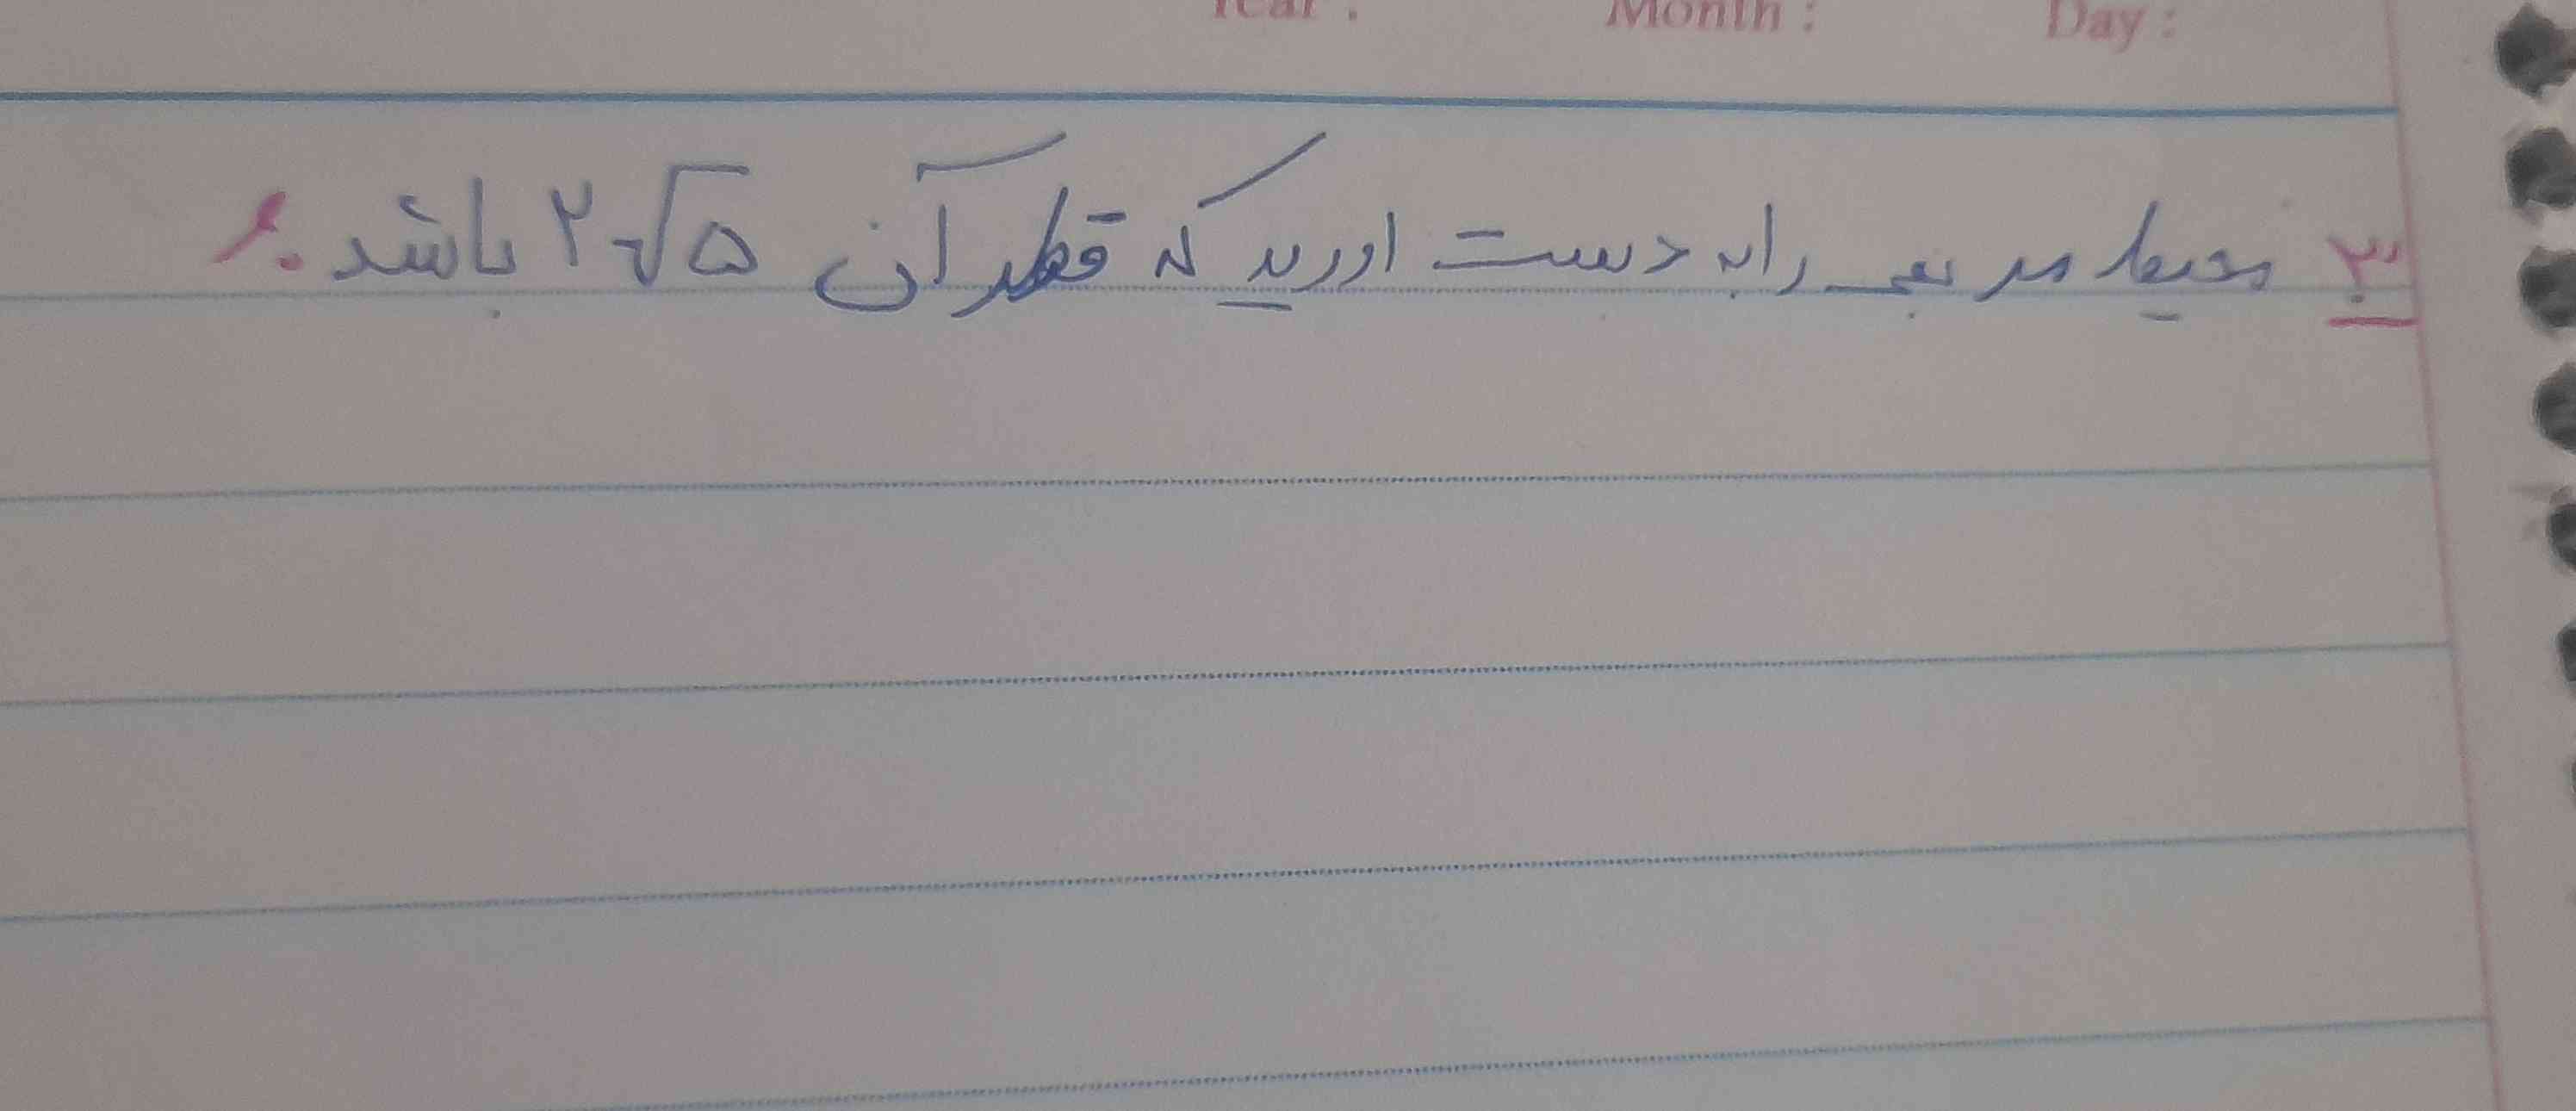 Year : Month : Day :
۳ محیط مربعی را به دست اورید که قطر آن ۲√۵ باشد.